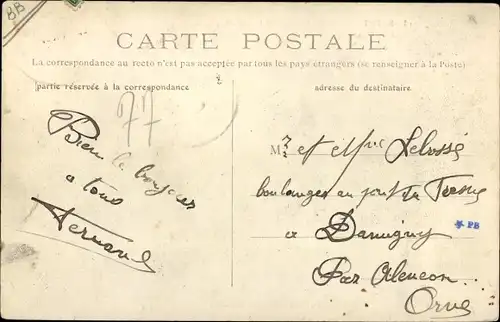 88
CARTE POSTALE
La correspondance au recto n'est pas acceptée par tous les pays étrangers (se renseigner à la Poste)
partie réservée à la correspondance
adresse du destinataire
77
Bien le bonjour
a tous
Fernand
M et Mme Lebossé
boulanger au pont du
a Damigny
Par Alencon
Orne
PB